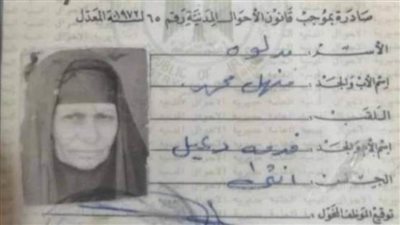 صادرة بموجب قانون الأحوال المدنية رقم ٦٥ لسنة ١٩٧٢ المعدل
الاسم :
اسم الأب والجد : منهل محمد
اللقب :
اسم الأم والجد : دعيل
الجنس : انثى
توقيع الموظف المخول :